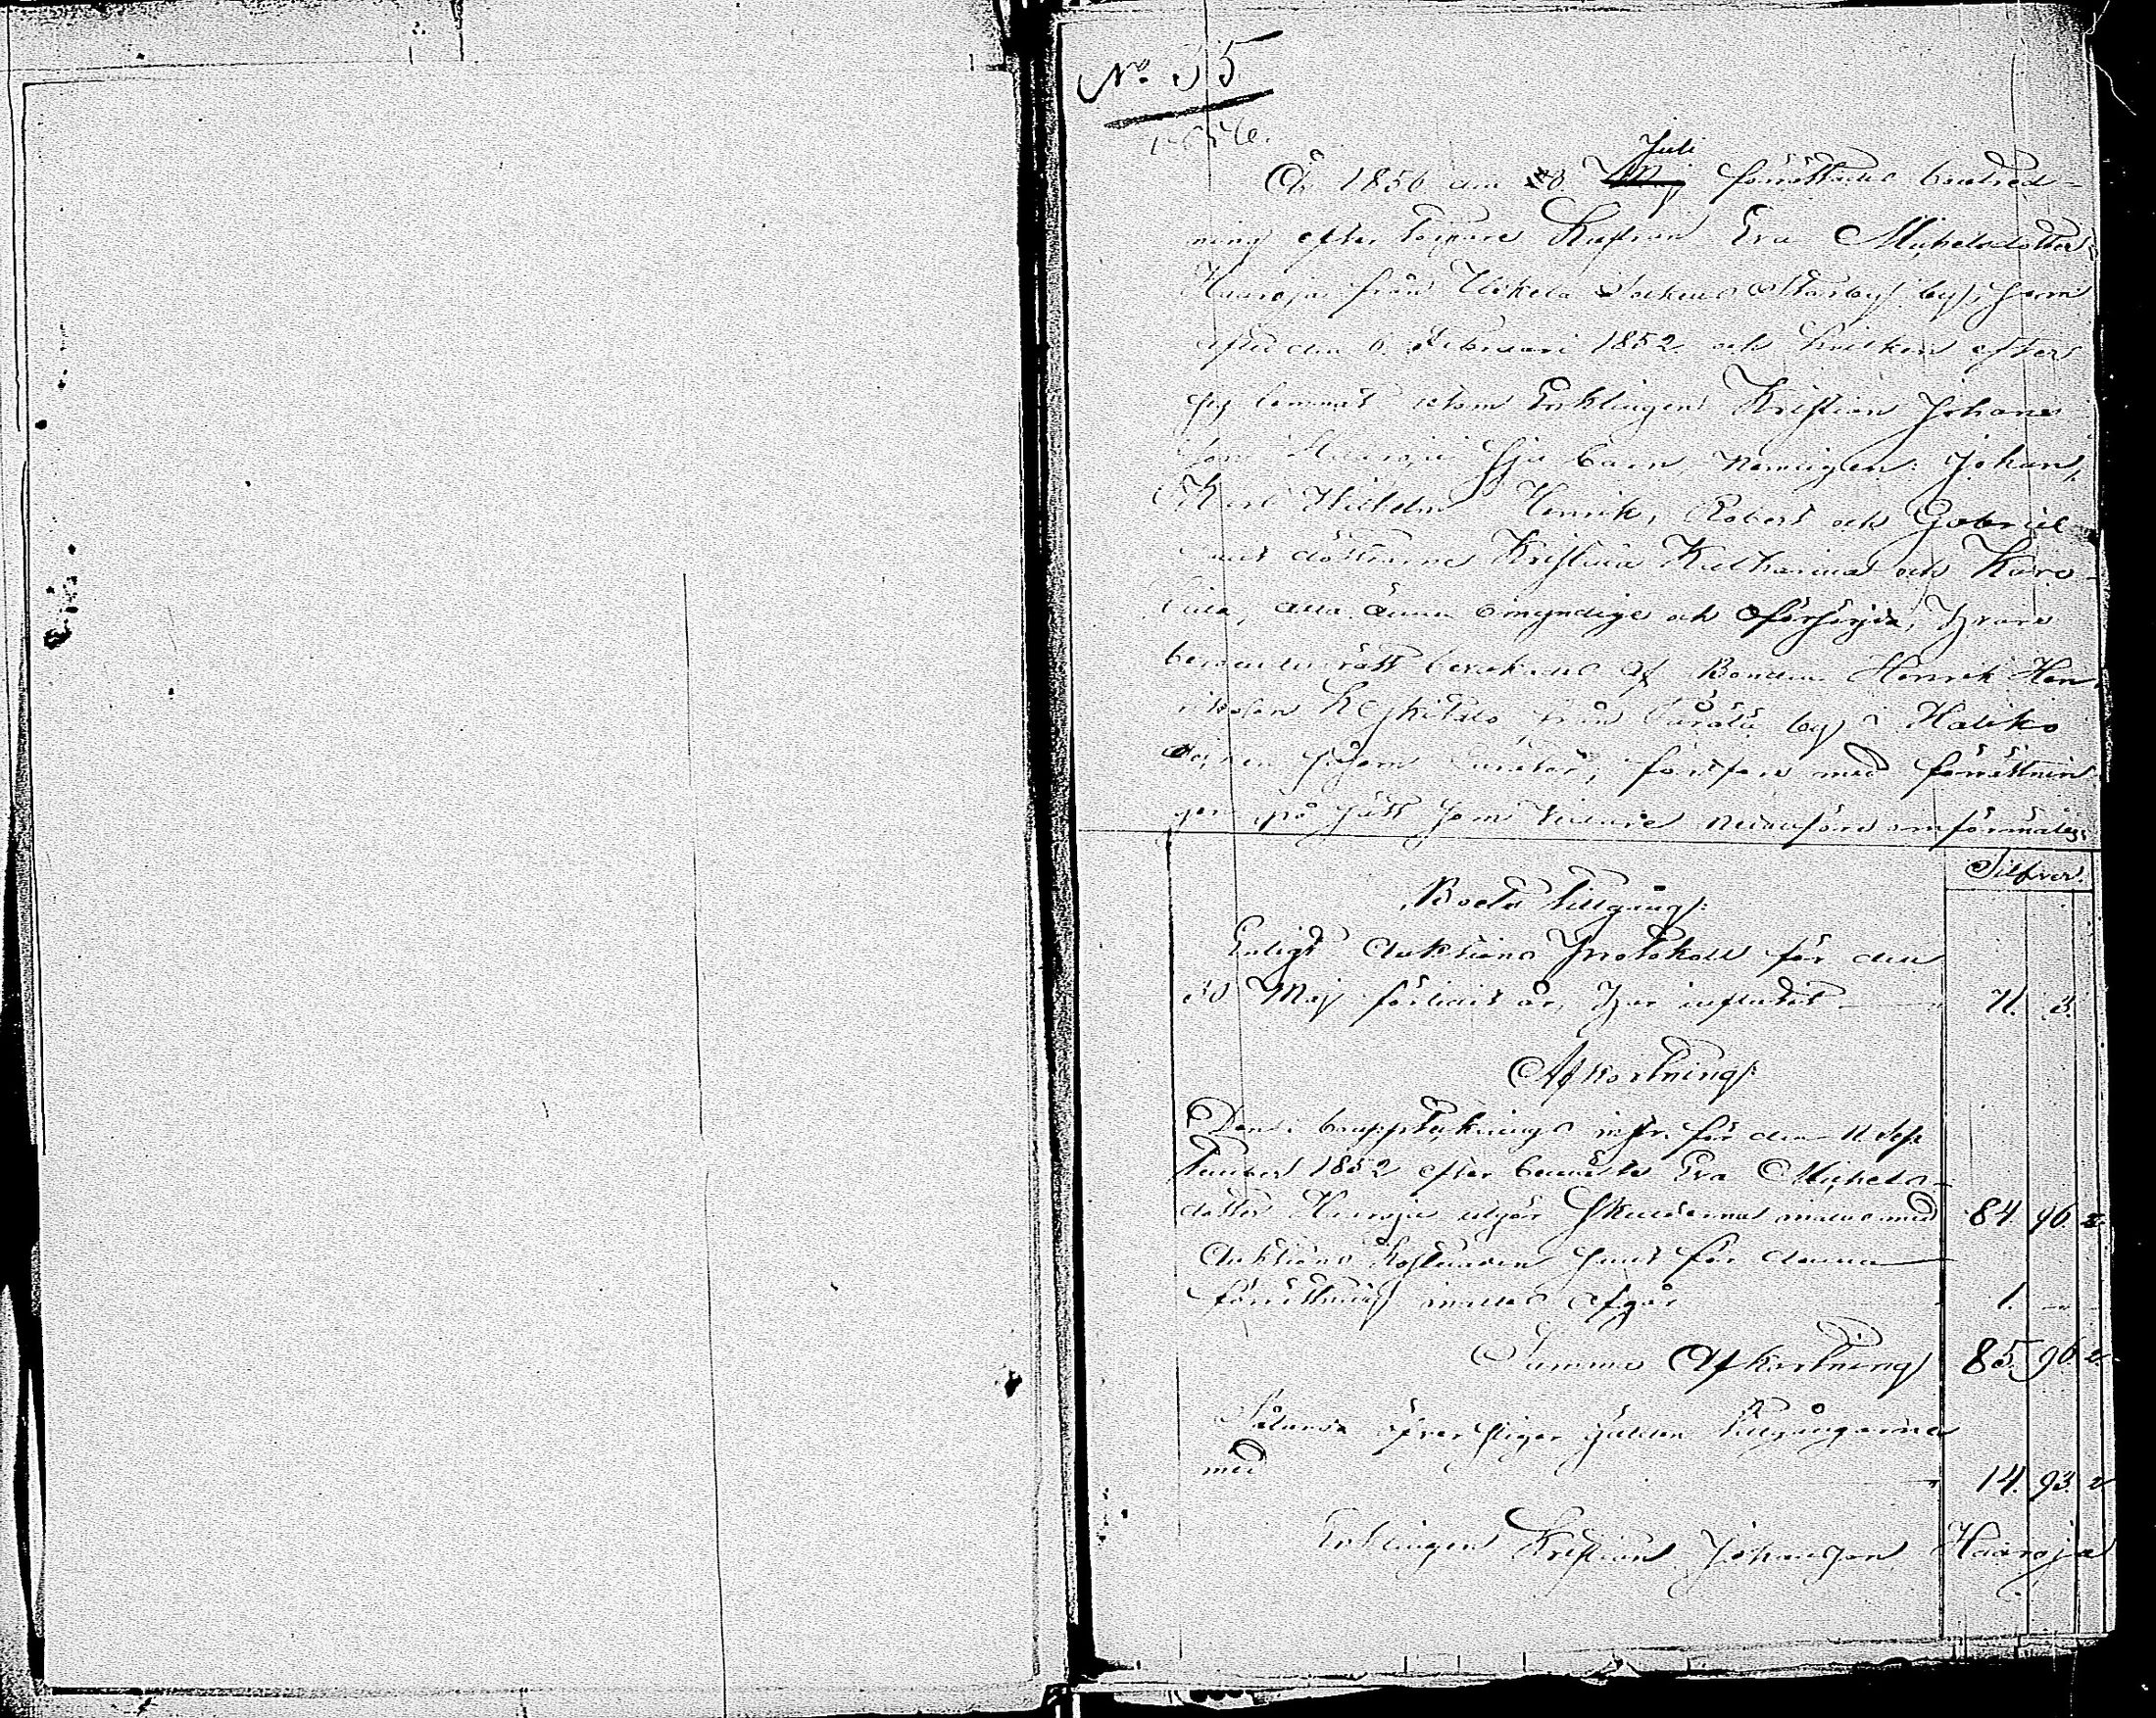 No 35
1856.
Juli
År 1856 den 28 Maj förrättades boutred-
ning efter Torpare Hustrun Eva Michelsdotter
Haaroja från Uskela Socken by, som
afled den 6 Februari 1852 och hvilken efter
sig lemnat utom Enklingen Kristian Johans
son Haaroja sju barn, nemligen: Johan,
Karl Wilhelm Henrik, Robert och Gabriel
samt döttrarne Kristina Katharina och Karo-
lina, alla ännu omyndige och oförsörjda, hvars
rätt bevakades af Bonden Henrik Hen
riksson från by i Haliko
Socken såsom Curator, förfors med förrättnin
gen på sätt som vidare nedanföre omförmäles:
Silfver.
Boets tillgång:
Enligt Auktions Protokoll för den
30 Maj förlidit år, har influtit 71. 3.
Afkortning:
Den i bouppteknings instr. för den 11 Sep
tember 1852 efter bemälte Eva Michels-
dotter Haaroja utgör skulderna inalles med 84. 96. 2
Auktions Kostnaden samt för denna
förrättning inalles afgår 1. —
Summa Afkortning 85. 96. 2.
Sålunda öfverstiger gälden tillgångarna
med 14. 93. 2
Enklingen Kristian Johansson Haaroja